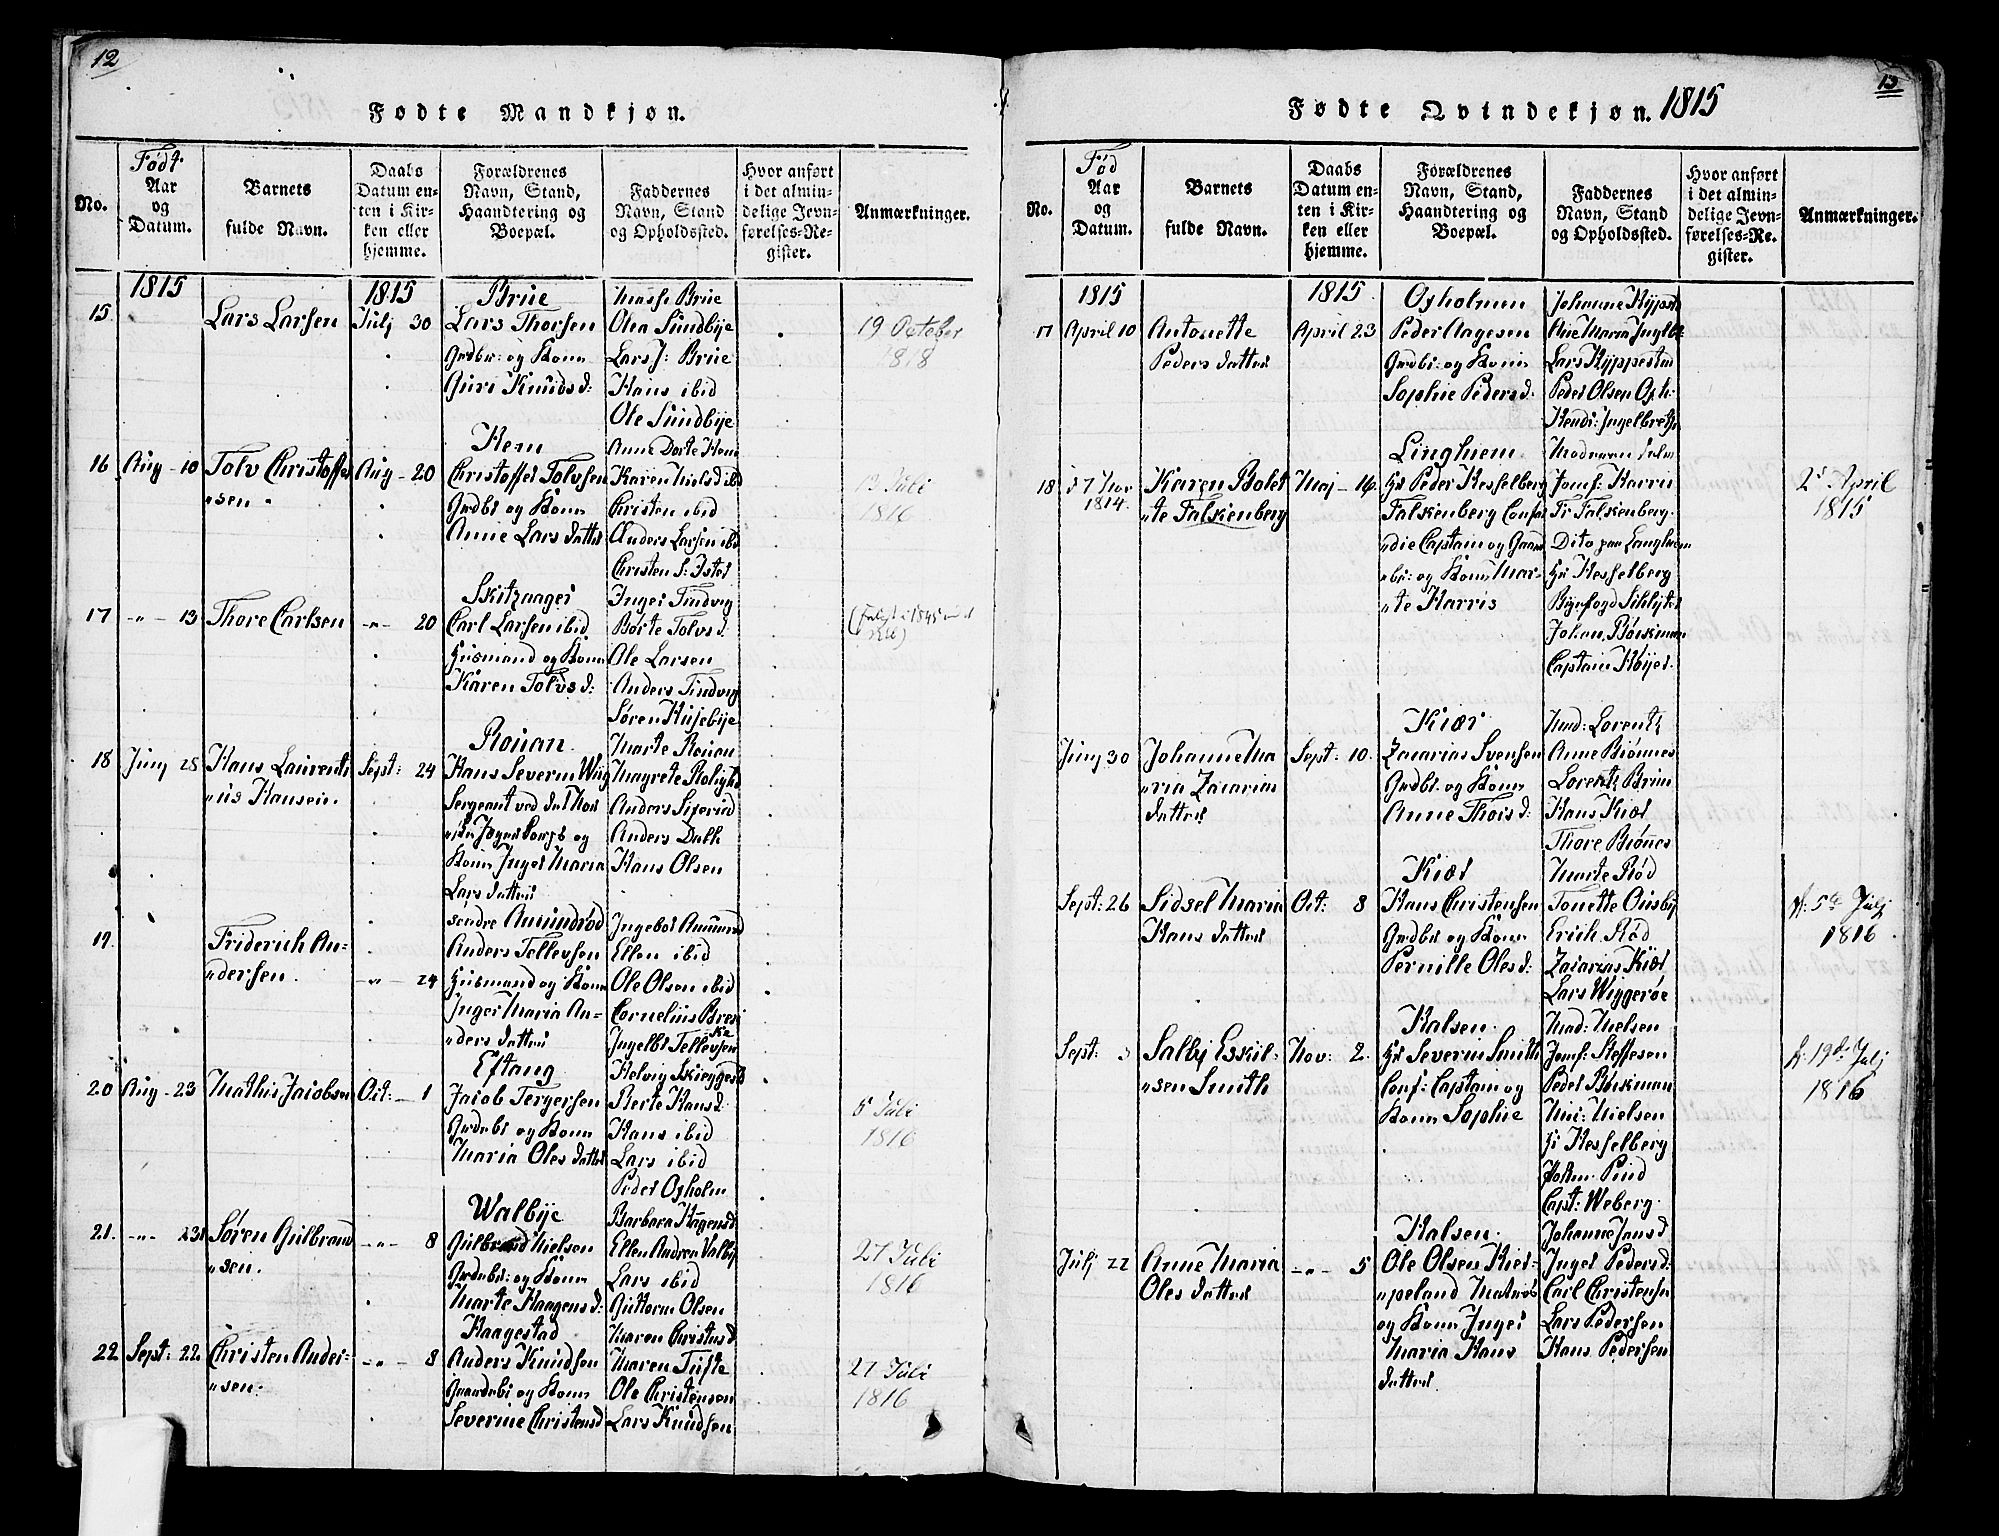 12
Fødte Mandkjøn.
No.
Født
Aar
og
Datum.
Barnets
fulde Navn.
Daabs
Datum en-
ten i Kir-
ken eller
hjemme.
Forældrenes
Navn, Stand,
Haandtering og
Boepæl.
Faddernes
Navn, Stand
og Opholdssted.
Hvor anført
i det almin-
delige Jevn-
førelses-Re-
gister.
Anmærkninger.
1815
1815
15
Lars Larsen
Julj 30
Brüe
Lars Thorsen
Grdbr: og Kone
Guri Knudsd:
Marthe Brüe
Olea Sundbÿe
Lars J: Brüe
Hans ibid
Ole Sundbÿe
19 October
1818
16
Aug - 10
Tolv Christoffer
"sen.
Aug - 20
Hem
Christoffer Tolvsen
Grdbr og Kone
Anne Lars datter
Anne Dorte Hem
Karen Nielsd ibd
Christen ibid
Anders Larsen ibd
Christen S: Istre
13 Juli
1816
17
-"- 13
Thore Carlsen
-"- 20
Skitzager
Carl Larsen ibid
Huusmand og Kone
Karen Tolvsd:
Inger Tindvig
Børte Tolvsd.
Ole Larsen
Anders Tindvig
Søren Husebÿe
18
Junÿ 28
Hans Laurenti
"us Hansen.
Sept: 24
Rouan.
Hans Severin Wiig
Sergeant ved det Nor
Kone Inger Maria
Lars datter
Marte Rouan
Magrete Rolighd
Anders
Anders Dalh
Hans Olsen
19.
Friderich An-
"dersen.
-"- 24
søndre Amundrød
Anders Tellevsen
Huusmand og Kone
Inger Maria An-
"ders datter
Ingebor Amunrød
Ellen ibid
Ole Olsen ibid
Cornelius Bres
ke
Ingelbt Tellevsen
20
Aug - 23
Mathis Jacobsen
Oct: - 1
Eftang
Jacob Tergersen
Grdbr og Kone
Maria Oles datter
Helvig Skieggestd
Berte Hansd.
Hans ibid
Lars ibid
Peder Oxholm
5 Juli
1816
21.
-"- 23
Søren Gulbrand
"sen.
-"- 8
Walbÿe
Gulbrand Nielsen
Grdbr: og Kone
Marte Haagensd:
Barbara Hagensd.
Ellen Andrea Valbÿ
Lars ibid
Guttorm Olsen
Maren Christensd
27 Juli
1816
22
Sept: 22
Christen Ander-
"sen.
-"- 8
Haagestad
Anders Knudsen
Gaardbr og Kone
Severine Christensd
Maren Tufte
Ole Christensen
Lars Knudsen
27 Juli
1816
13
Fødte Qvindekjøn. 1815
No.
Fød
Aar
og
Datum.
Barnets
fulde Navn.
Daabs
Datum en-
ten i Kir-
ken eller
hjemme.
Forældrenes
Navn, Stand,
Haandtering og
Boepæl.
Faddernes
Navn, Stand
og Opholdssted.
Hvor anført
i det almin-
delige Jevn-
førelses-Re-
gister.
Anmærkninger.
1815
1815
17
April 10
Antonette
Peders datter
April 23
Oxholmen
Peder Aagesen
Grdbr: og Kone
Sophie Pedersd:
Johanne Kÿpest
Ane Maria Ingelbr
Lars Kÿppestad
Peder Olsen Oxh:
Hendr: Ingelbretsn
18
d 7 Nov
1814.
Karen Bolet
"te Falkenberg
Maj - 16
Linghiem
Hr Peder Kesselberg
Falkenberg Confer
"die Captain og Gaard
"br: og Kone Mar-
"te Harris
Jomf: Harris
Fr Falkenberg.
Dito paa Langhem
Hr Hesselberg
Byefogd
Johan Børkman
Captain Høyer.
2d April
1815
Junÿ 30
Johanne Ma
"ria Zacarias
datter
Sept: 10.
Kiær
Zacarias Svensen
Grdbr. og Kone
Anne Thorsd:
Mad: Lorentz
Anne Biønnes
Lorentz Brun
Hans Kiær
Thore Biønnes
Sept: 26
Sidsel Maria
Hans datter
Oct: 8
Kiær
Hans Christensen
Grdbr og Kone
Pernille Olesd:
Marte Rød
Tonette Ousbÿ
Erich Rød
Zacarias Kiær
Lars Wiggerøe
d: 5te Julj
1816
Sept:
Salvj Eskil-
"sen Smith
Nov: 2.
Halsen.
Hr Severin Smith
Conf: Captain og
Kone Sophie
Mad: Nielsen
Jomf: Steffesen
Peder Børkman
Nic: Nielsen
Hr Hesselberg
Capt: Weberg.
d: 19d: Julj
1816
Julj 22
Anne Maria
Oles datter
-"- 5
Halsen.
Ole Olsen Kier-
"peland Matros
og Kone Inger
Maria Hans
datter.
Johanne Jansd
Inger Pedersd:
Carl Christensen
Lars Pedersen
Hans Pedersen